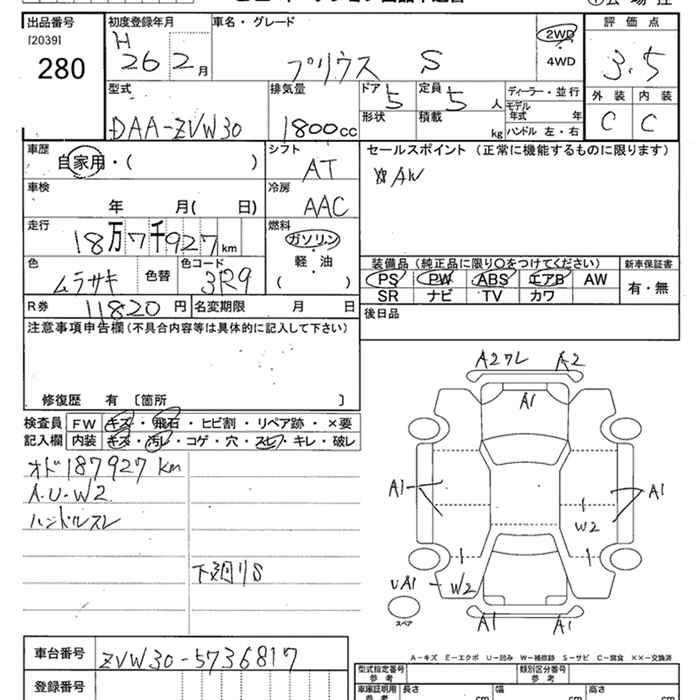 出品番号
[2039]
280
初度登録年月
H
26 2月
車名・グレード
プリウス S
2WD
4WD
評価点
3.5
型式
DAA-ZVW30
排気量
1800cc
ドア
5
形状
定員
5人
積載
kg
ディーラー・並行
モデル
年式 年
ハンドル 左・右
外装 内装
C C
車歴
自家用・( )
シフト
AT
セールスポイント(正常に機能するものに限ります)
AW
車検
年 月( 日)
冷房
AAC
走行
18万7千927km
燃料
ガソリン
軽・油
( )
色
ムラサキ
色替
色コード
3R9
装備品(純正品に限り〇をつけてください)
新車保証書
PS PW ABS エアB AW
SR ナビ TV カワ
有・無
R券 11820円
名変期限 月 日
後日品
注意事項申告欄(不具合内容等は具体的に記入して下さい)
修復歴 有 [箇所 ]
検査員
記入欄
FW キズ・飛石・ヒビ割・リペア跡・×要
内装 キズ・汚レ・コゲ・穴・スレ・キレ・破レ
オド187927km
A.U.W2
ハンドルスレ
下廻りS
A2ワレ A2
A1
A1
A1
W2
UA1
W2
A1 A1
スペア
A-キズ E-エクボ U-凹み W-補修跡 S-サビ C-腐食 ××-交換済
車台番号
ZVW30-5736817
登録番号
型式指定番号
参考
類別区分番号
参考
車庫証明用
参考
長さ cm
幅 cm
高さ cm